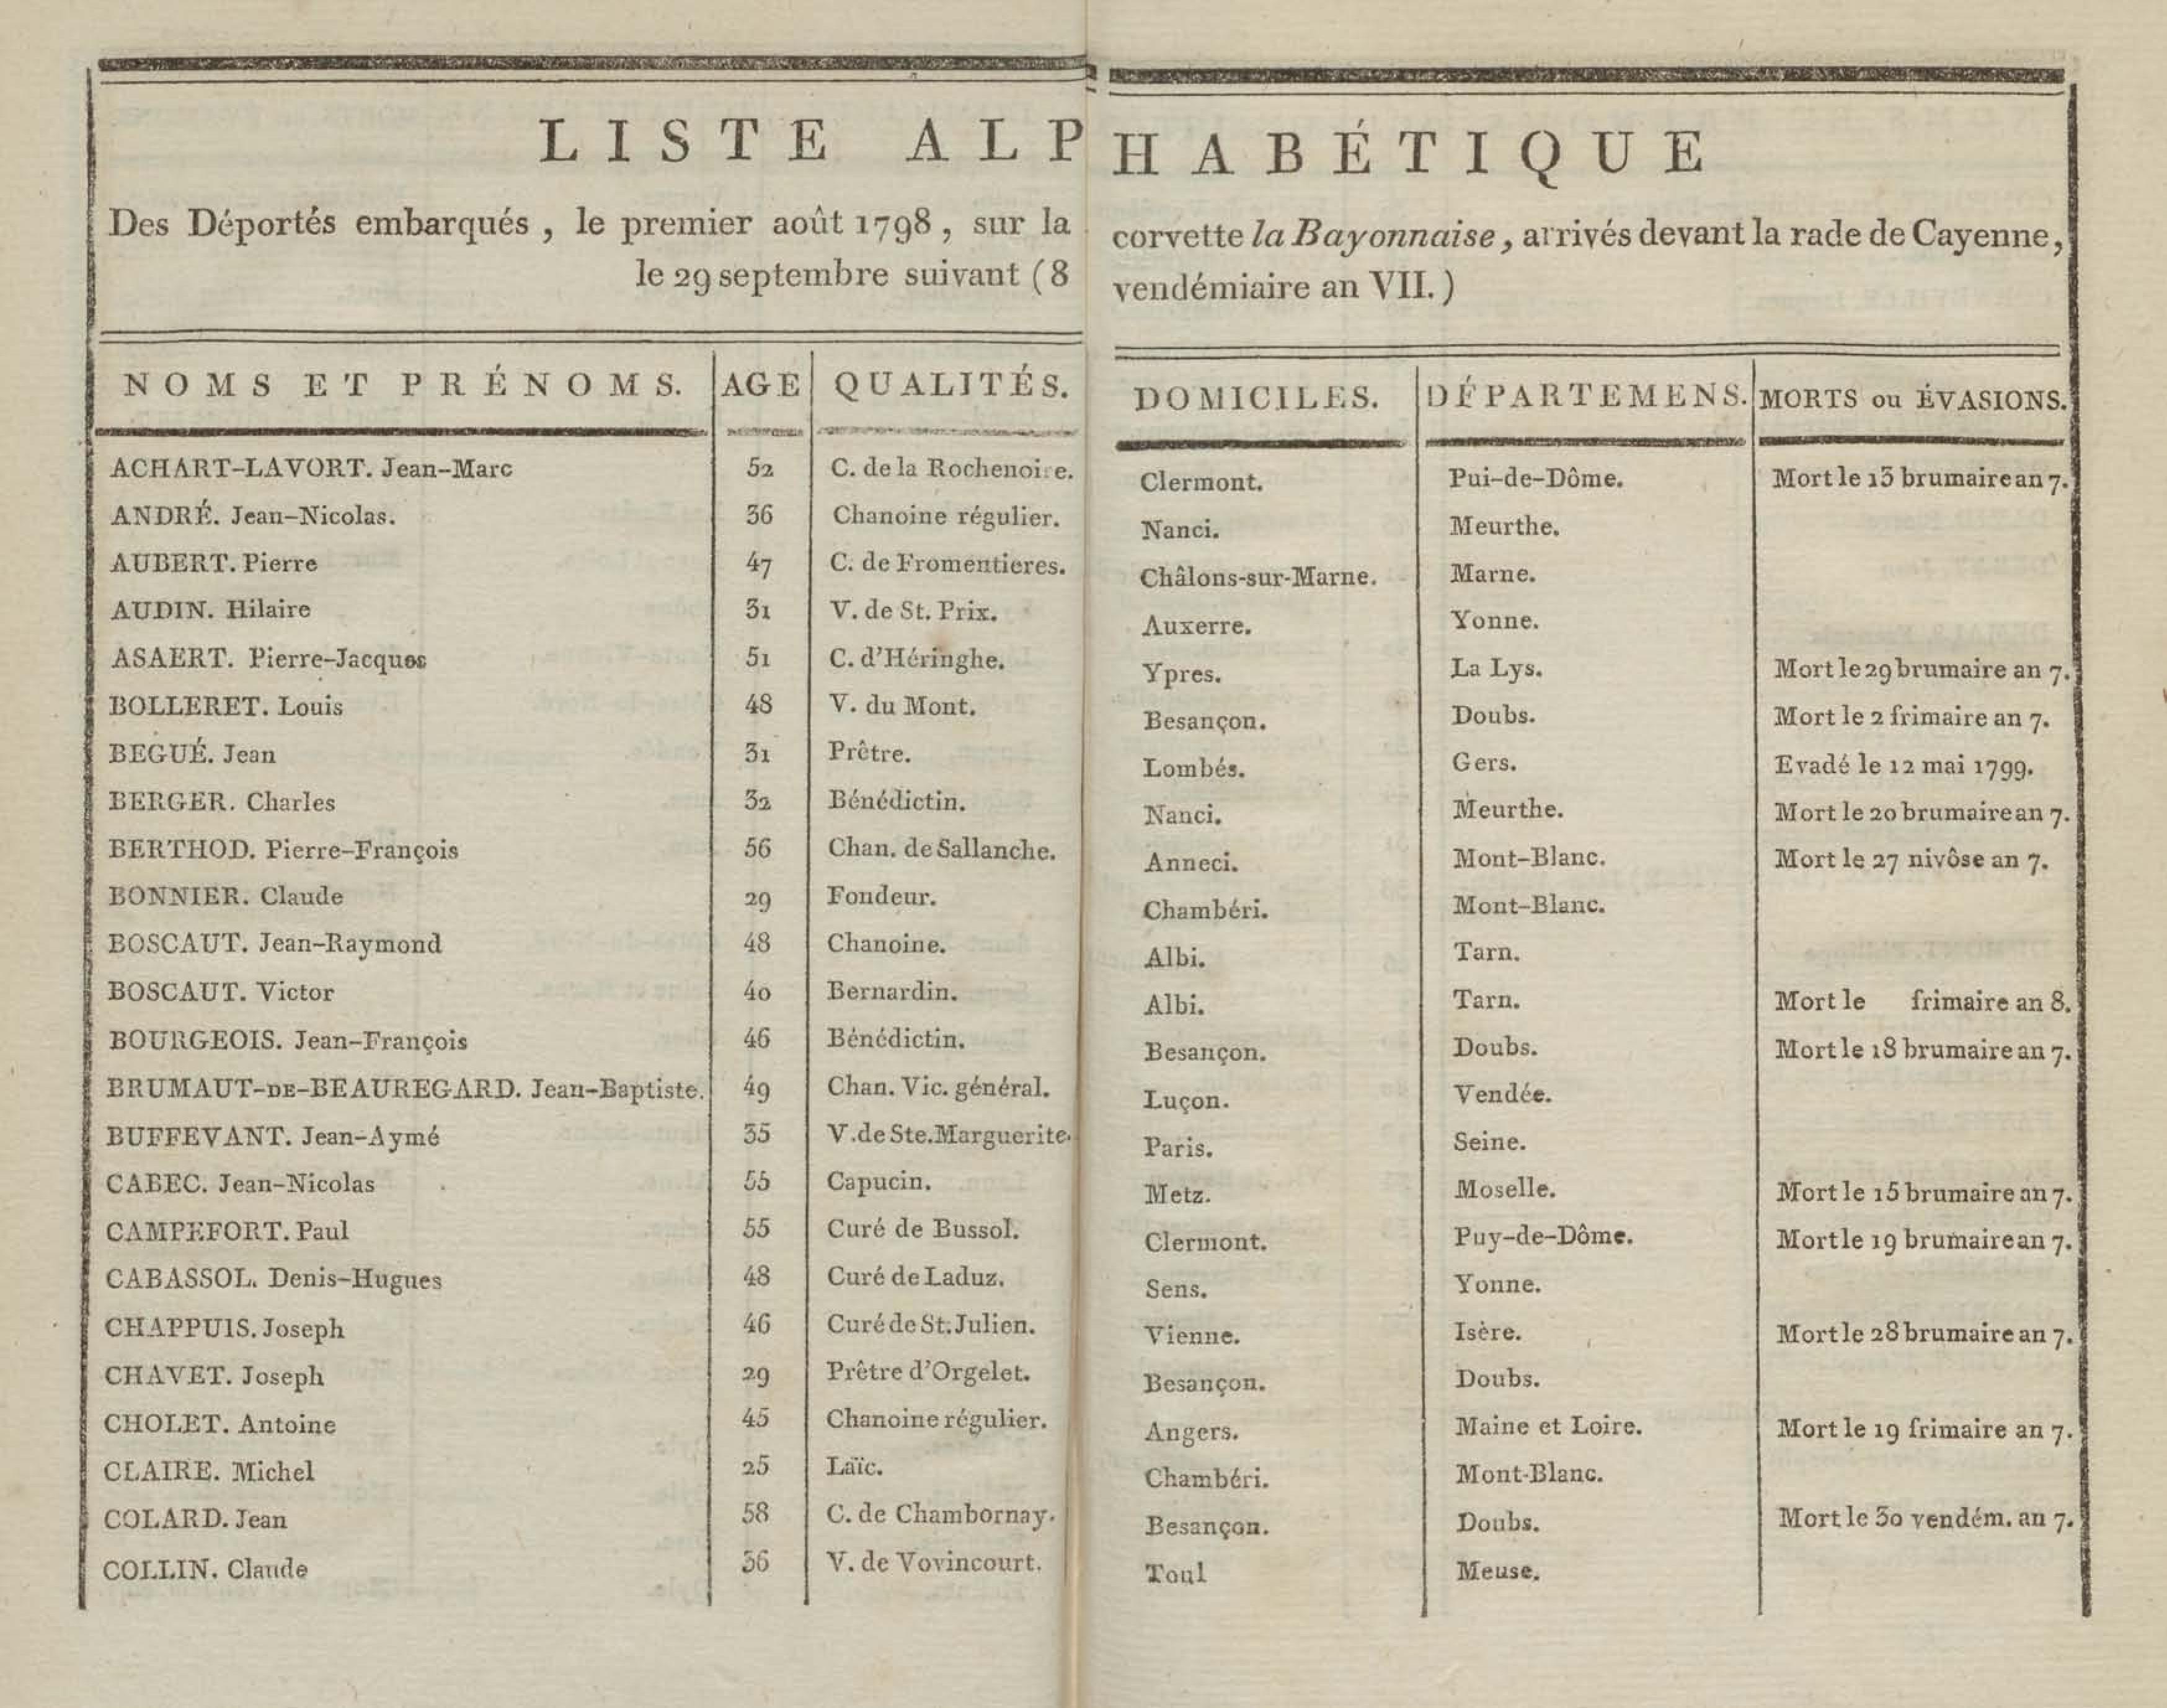 LISTE ALPHABÉTIQUE
Des Déportés embarqués, le premier août 1798, sur la corvette la Bayonnaise, arrivés devant la rade de Cayenne,
le 29 septembre suivant (8 vendémiaire an VII.)
NOMS ET PRÉNOMS. AGE QUALITÉS. DOMICILES. DÉPARTEMENS. MORTS ou ÉVASIONS.
ACHART-LAVORT. Jean-Marc 52 C. de la Rochenoire. Clermont. Pui-de-Dôme. Mort le 13 brumaire an 7.
ANDRÉ. Jean-Nicolas. 36 Chanoine régulier. Nanci. Meurthe.
AUBERT. Pierre 47 C. de Fromentieres. Châlons-sur-Marne. Marne.
AUDIN. Hilaire 31 V. de St. Prix. Auxerre. Yonne.
ASAERT. Pierre-Jacques 51 C. d'Héringhe. Ypres. La Lys. Mort le 29 brumaire an 7.
BOLLERET. Louis 48 V. du Mont. Besançon. Doubs. Mort le 2 frimaire an 7.
BEGUÉ. Jean 31 Prêtre. Lombés. Gers. Evadé le 12 mai 1799.
BERGER. Charles 32 Bénédictin. Nanci. Meurthe. Mort le 20 brumaire an 7.
BERTHOD. Pierre-François 56 Chan. de Sallanche. Anneci. Mont-Blanc. Mort le 27 nivôse an 7.
BONNIER. Claude 29 Fondeur. Chambéri. Mont-Blanc.
BOSCAUT. Jean-Raymond 48 Chanoine. Albi. Tarn.
BOSCAUT. Victor 40 Bernardin. Albi. Tarn. Mort le frimaire an 8.
BOURGEOIS. Jean-François 46 Bénédictin. Besançon. Doubs. Mort le 18 brumaire an 7.
BRUMAUT-DE-BEAUREGARD. Jean-Baptiste. 49 Chan. Vic. général. Luçon. Vendée.
BUFFEVANT. Jean-Aymé 35 V. de Ste. Marguerite. Paris. Seine.
CABEC. Jean-Nicolas 55 Capucin. Metz. Moselle. Mort le 15 brumaire an 7.
CAMPEFORT. Paul 55 Curé de Bussol. Clermont. Puy-de-Dôme. Mort le 19 brumaire an 7.
CABASSOL. Denis-Hugues 48 Curé de Laduz. Sens. Yonne.
CHAPPUIS. Joseph 46 Curé de St. Julien. Vienne. Isère. Mort le 28 brumaire an 7.
CHAVET. Joseph 29 Prêtre d'Orgelet. Besançon. Doubs.
CHOLET. Antoine 45 Chanoine régulier. Angers. Maine et Loire. Mort le 19 frimaire an 7.
CLAIRE. Michel 25 Laïc. Chambéri. Mont-Blanc.
COLARD. Jean 58 C. de Chambornay. Besançon. Doubs. Mort le 30 vendém. an 7.
COLLIN. Claude 36 V. de Vovincourt. Toul Meuse.